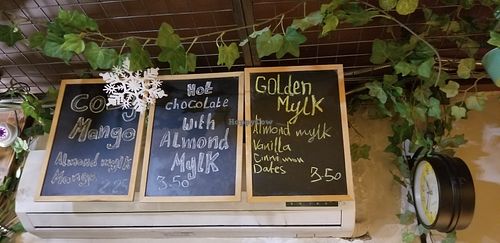 Mango
Almond mylk
Mango 2.95
Hot
chocolate
With
Almond
Mylk
3.50
Golden
Mylk
Almond mylk
Vanilla
Cinnimon
Dates 3.50
HappyCow